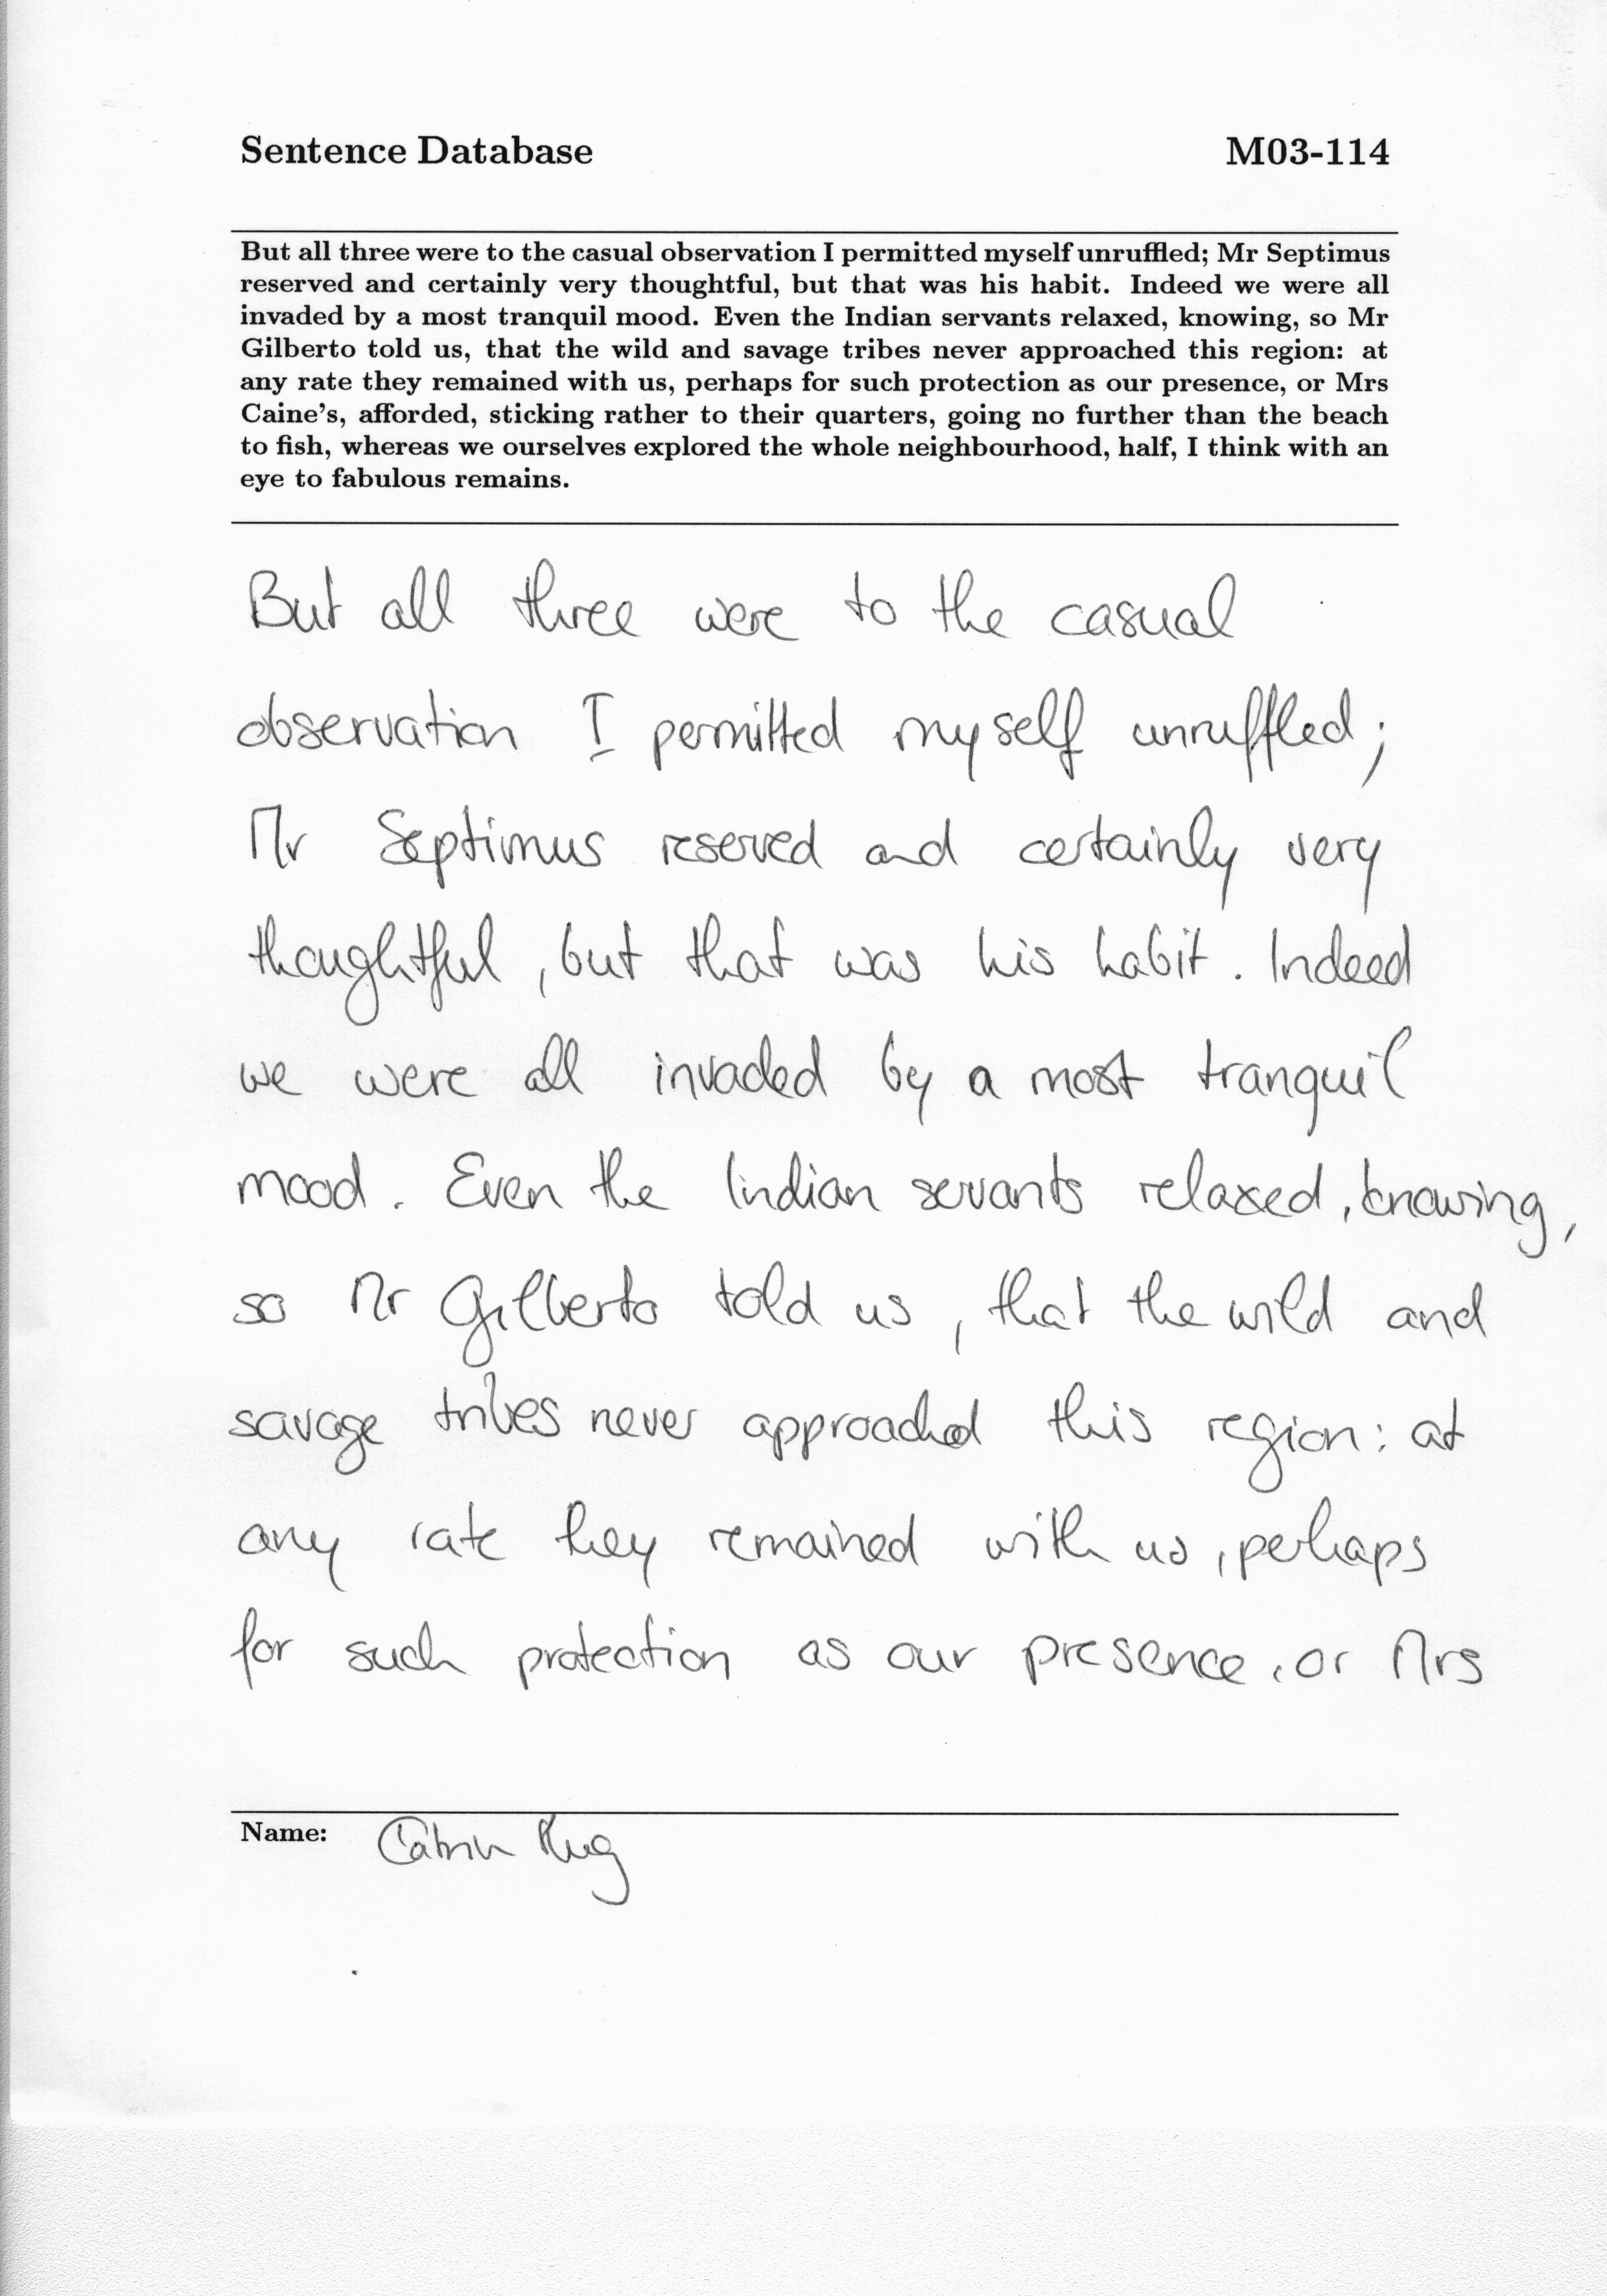 Sentence Database M03-114
But all three were to the casual observation I permitted myself unruffled; Mr Septimus
reserved and certainly very thoughtful, but that was his habit. Indeed we were all
invaded by a most tranquil mood. Even the Indian servants relaxed, knowing, so Mr
Gilberto told us, that the wild and savage tribes never approached this region: at
any rate they remained with us, perhaps for such protection as our presence, or Mrs
Caine's, afforded, sticking rather to their quarters, going no further than the beach
to fish, whereas we ourselves explored the whole neighbourhood, half, I think with an
eye to fabulous remains.
But all three were to the casual
observation I permitted myself unruffled;
Mr Septimus reserved and certainly very
thoughtful, but that was his habit. Indeed
we were all invaded by a most tranquil
mood. Even the Indian servants relaxed, knowing,
so Mr Gilberto told us, that the wild and
savage tribes never approached this region: at
any rate they remained with us, perhaps
for such protection as our presence, or Mrs
Name: Catrin